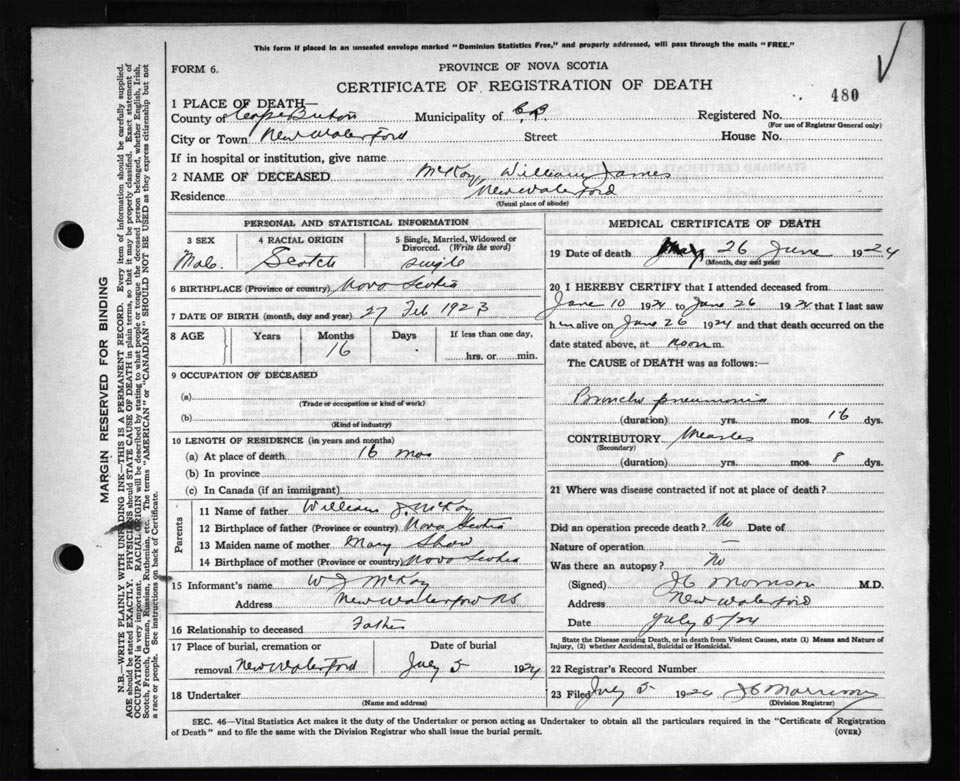 This form if placed in an unsealed envelope marked "Dominion Statistics Free," and properly addressed, will pass through the mails "FREE."
FORM 6.
PROVINCE OF NOVA SCOTIA
CERTIFICATE OF REGISTRATION OF DEATH
480
1 PLACE OF DEATH—
County of Cape Breton Municipality of C.B. Registered No.
(For use of Registrar General only)
City or Town New Waterford Street House No.
If in hospital or institution, give name
2 NAME OF DECEASED McKay William James
Residence New Waterford
(Usual place of abode)
PERSONAL AND STATISTICAL INFORMATION
3 SEX 4 RACIAL ORIGIN 5 Single, Married, Widowed or Divorced. (Write the word)
Male Scotch single
6 BIRTHPLACE (Province or country) Nova Scotia
7 DATE OF BIRTH (month, day and year) 27 Feb 1923
8 AGE Years Months Days If less than one day,
16 hrs. or min.
9 OCCUPATION OF DECEASED
(a)
(Trade or occupation or kind of work)
(b)
(Kind of industry)
10 LENGTH OF RESIDENCE (in years and months)
(a) At place of death 16 mos
(b) In province
(c) In Canada (if an immigrant)
Parents
11 Name of father William J. McKay
12 Birthplace of father (Province or country) Nova Scotia
13 Maiden name of mother Mary Shaw
14 Birthplace of mother (Province or country) Nova Scotia
15 Informant's name W J McKay
Address New Waterford N.S.
16 Relationship to deceased Father
17 Place of burial, cremation or Date of burial
removal New Waterford July 5 1924
18 Undertaker
(Name and address)
MEDICAL CERTIFICATE OF DEATH
19 Date of death 26 June 1924
(Month, day and year)
20 I HEREBY CERTIFY that I attended deceased from
June 10 1924 to June 26 1924 that I last saw
him alive on June 26 1924 and that death occurred on the
date stated above, at noon m.
The CAUSE of DEATH was as follows:—
Broncho pneumonia
(duration) yrs. mos. 16 dys.
CONTRIBUTORY Measles
(Secondary)
(duration) yrs. mos. 8 dys.
21 Where was disease contracted if not at place of death?
Did an operation precede death? No Date of
Nature of operation —
Was there an autopsy? No
(Signed) J C Morrison M.D.
Address New Waterford
Date July 5/24
State the Disease causing Death, or in death from Violent Causes, state (1) Means and Nature of
Injury, (2) whether Accidental, Suicidal or Homicidal.
22 Registrar's Record Number
23 Filed July 5 1924 J C Morrison
(Division Registrar)
SEC. 46—Vital Statistics Act makes it the duty of the Undertaker or person acting as Undertaker to obtain all the particulars required in the "Certificate of Registration
of Death" and to file the same with the Division Registrar who shall issue the burial permit. (OVER)
MARGIN RESERVED FOR BINDING
N.B.—WRITE PLAINLY WITH UNFADING INK—THIS IS A PERMANENT RECORD. Every item of information should be carefully supplied.
AGE should be stated EXACTLY. PHYSICIANS should STATE CAUSE OF DEATH in plain terms, so that it may be properly classified. Exact statement of
OCCUPATION is very important. RACIAL ORIGIN will be described by stating to what people or tongue the deceased person belonged, whether English, Irish,
Scotch, French, German, Russian, Ruthenian, etc. The terms "AMERICAN" or "CANADIAN" SHOULD NOT BE USED as they express citizenship but not
a race or people. See instructions on back of Certificate.